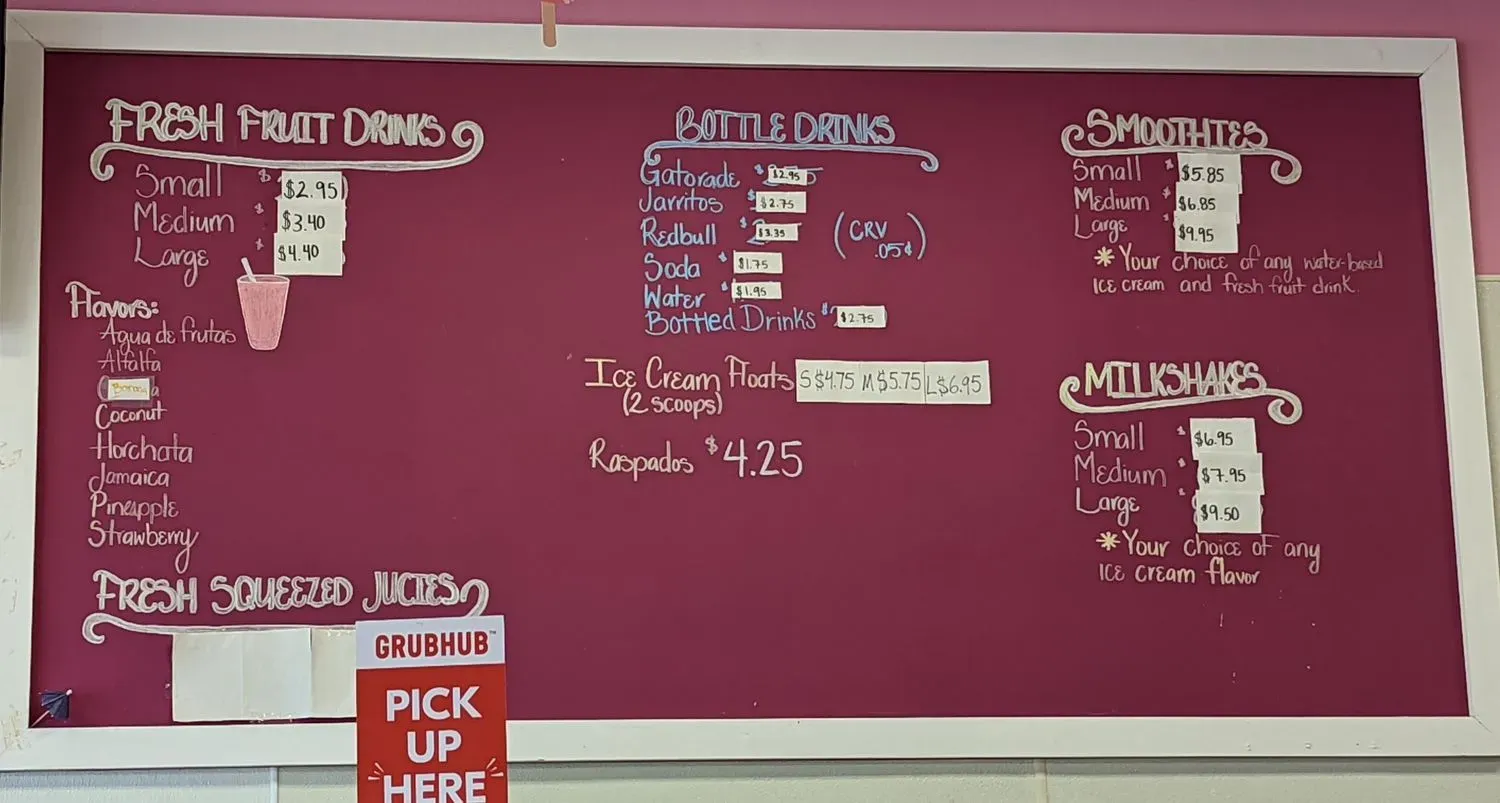 FRESH FRUIT DRINKS
Small $ $2.95
Medium $ $3.40
Large $ $4.40
Flavors:
Agua de frutas
Alfalfa
Coconut
Horchata
Jamaica
Pineapple
Strawberry
FRESH SQUEEZED JUCIES
GRUBHUB™
PICK
UP
HERE
BOTTLE DRINKS
Gatorade $ $2.95
Jarritos $ $2.75
Redbull $ $3.35
(CRV
.05¢)
Soda $ $1.75
Water $ $1.95
Bottled Drinks $ $2.75
Ice Cream Floats S $4.75 M $5.75 L $6.95
(2 scoops)
Raspados $4.25
SMOOTHIES
Small $ $5.85
Medium $ $6.85
Large $ $9.95
*Your choice of any water-based
ice cream and fresh fruit drink.
MILKSHAKES
Small $ $6.95
Medium $ $7.95
Large $ $9.50
*Your choice of any
ice cream flavor